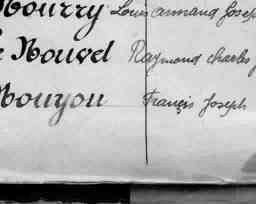 Nourry Louis armand Joseph
Le Nouvel Raymond charles
Nouyou Francis Joseph